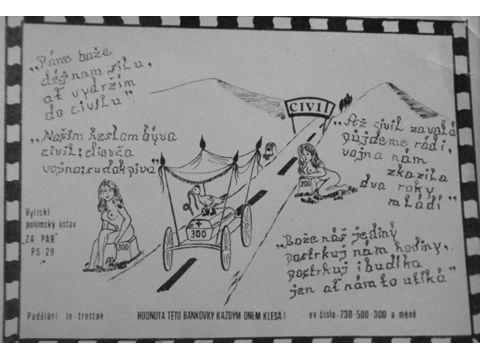 „Pane bože
dej nam silu,
ať vydržím
do civilu"
„Našim heslem býva
civil; dievča
vojna; sudok piva"
CIVIL
„Až civil zavolá
půjdeme rádi,
vojna nam
zkazila
dva roky
mládí"
200
300
+
300
Vytiskl
ústav
"ZA PÁR"
PS-29
„Bože náš jediný
postrkuj nám hodiny,
postrkuj i budíka
jen ať nám to utíká"
Padělání je trestné
HODNOTA TÉTO BANKOVKY KAŽDÝM DNEM KLESÁ!
ev. číslo - 730 - 500 - 300 a méně